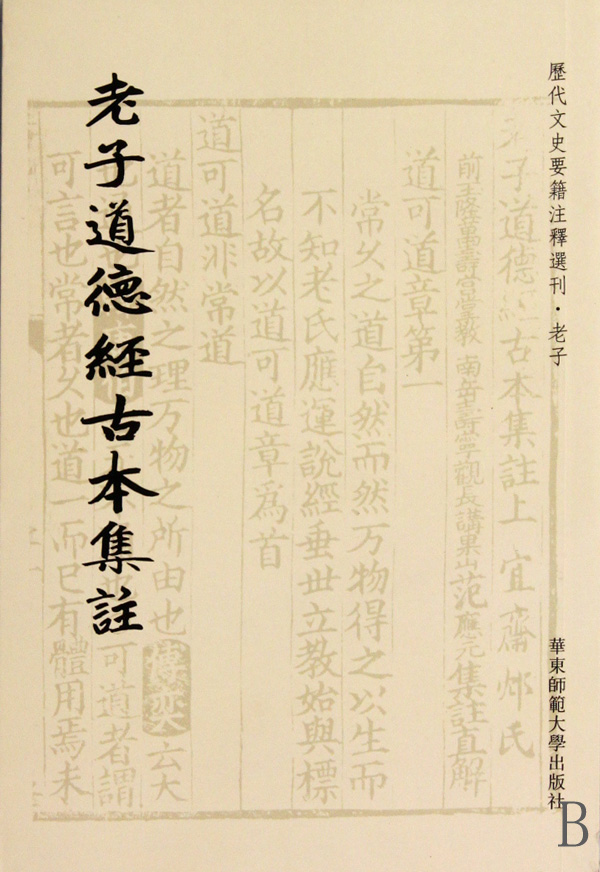 歷代文史要籍注釋選刊・老子
華東師範大學出版社
老子道德經古本集註
子道德經古本集註上 宜齋
前玉隆萬壽宮掌教 南岳壽寧觀長講果山范應元集註直解
道可道章第一
常久之道自然而然万物得之以生而
不知老氏應運說經垂世立教始與標
名故以道可道章爲首
道可道非常道
道者自然之理万物之所由也 奕云大
也 可道者謂
可言也常者久也道一而已有體用焉未
B